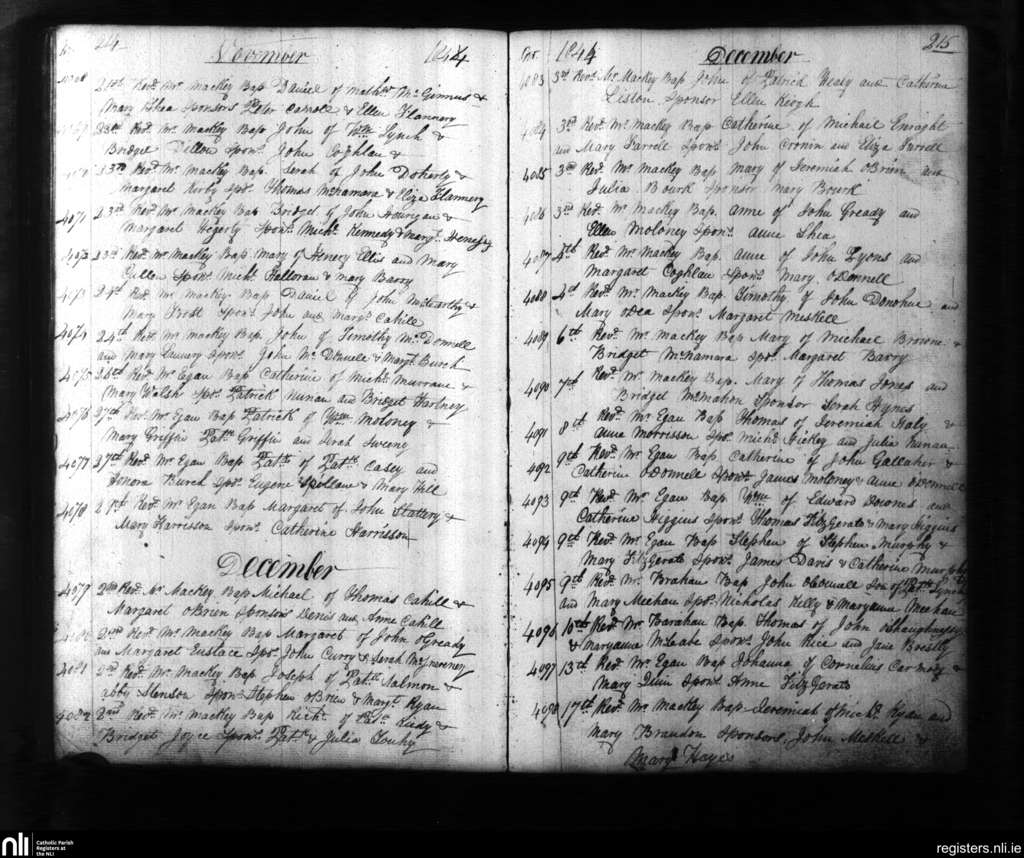 214 November 1844
21st Revd. Mr. Mackey Bap Daniel of Mathw. McGinnus &
Mary Shea Sponsors Peter Carroll & Ellen Flannery
23rd Revd. Mr. Mackey Bap John of Wm Lynch &
Bridget Dillon Spons. John Coghlan &
23rd Revd. Mr. Mackey Bap. Serah of John Doherty &
Margaret Kirby Spr. Thomas McNamara & Eliza Flannery
4071 23rd Revd. Mr. Mackey Bap Bridget of John Hourgan &
Margaret Hegerty Spons. Michl. Kennedy & Margt. Henessy
23rd Revd. Mr. Mackey Bap Mary of Henery Ellis and Mary
Cullen Spons. Michl. Halloran & Mary Barry
24th Revd. Mr. Mackey Bap. Daniel of John McCarthy &
Mary Spons. John and Margt. Cahill
4074 24th Revd. Mr. Mackey Bap. John of Timithy McDonnell
and Mary Spons. John McDonnell & Margt. Burch
4075 26th Revd. Mr. Egan Bap Catherine of Michl. Murrane &
Mary Walsh Spr. Patrick Nunan and Bridget Hartney
4076 27th Revd. Mr. Egan Bap Patrick of Wm Moloney &
Mary Griffin Patk. Griffin and Serah Sweeny
4077 27th Revd. Mr. Egan Bap Patk. of Patk. Casey and
Honora Burch Spr. Eugene Spillane & Mary Hill
4078 27th Revd. Mr. Egan Bap Margaret of John Slattery &
Mary Harrisson Spons. Catherine Harrisson
December
4079 2nd Revd. Mr. Mackey Bap. Michael of Thomas Cahill &
Margaret OBrien Sponsors Denis and Anne Cahill
2nd Revd. Mr. Mackey Bap Margaret of John OGready
and Margaret Eustace Spr. John Curry & Serah McSweeney
4081 2nd Revd. Mr. Mackey Bap Joseph of Patk. Salmon &
Abby Spons. Stephen OBrien & Margt. Ryan
4082 2nd Revd. Mr. Mackey Bap Richd. of Patk. &
Bridget Joyce Spons. Patk. & Julia Touhy
1844 December 215
4083 3rd Revd. Mr. Mackey Bap John of Patrick Healy and Catherine
Liston Sponsor Ellen Kiogh
4084 3rd Revd. Mr. Mackey Bap Catherine of Michael Enright
and Mary Farrell Spons. John Cronin and Eliza Farrell
4085 3rd Revd. Mr. Mackey Bap Mary of Jeremiah OBrien and
Julia Bourk Sponsor Mary Bourk
4086 3rd Revd. Mr. Mackey Bap. Anne of John Gready and
Ellen Moloney Spons. Anne Shea
4087 4th Revd. Mr. Mackey Bap. Anne of John Lyons and
Margaret Coghlan Spons. Mary ODonnell
4088 4th Revd. Mr. Mackey Bap. Timothy of John Donohue and
Mary ODea Spons. Margaret Meskell
4089 6th Revd. Mr. Mackey Bap Mary of Michael Browne &
Bridget McNamara Spr. Margaret Barry
4090 7th Revd. Mr. Mackey Bap. Mary of Thomas Jones and
Bridget McMahon Sponsor Serah Hynes
4091 8th Revd. Mr. Egan Bap Thomas of Jeremiah Haly &
Anne Morrisson Spr. Michl. Hickey and Julia Nunan
4092 9th Revd. Mr. Egan Bap Catherine of John Gallaher &
Catherine ODonnell Spons. James Moloney & Anne ODonnell
4093 9th Revd. Mr. Egan Bap Wm of Edward Downes and
Catherine Higgins Spons. Thomas FitzGerald & Mary Higgins
4094 9th Revd. Mr. Egan Bap Stephen of Stephen Murphy &
Mary FitzGerald Spons. James Davis & Catherine Murphy
4095 9th Revd. Mr. Brahan Bap John Son of Patk.
and Mary Meehan Spr. Nicholas Kelly & Maryanne Meehan
4096 10th Revd. Mr. Barahan Bap Thomas of John OShaughnessy
& Maryanne McCabe Spons. John Rice and Jane
4097 13th Revd. Mr. Egan Bap Johanna of Cornelius Carmody &
Mary Spons. Anne FitzGerald
4098 17th Revd. Mr. Mackey Bap Jeremiah of Michl. Ryan and
Mary Brandon Sponsors John Meskell &
Mary Hayes
nli
Catholic Parish
Registers at
the NLI
registers.nli.ie